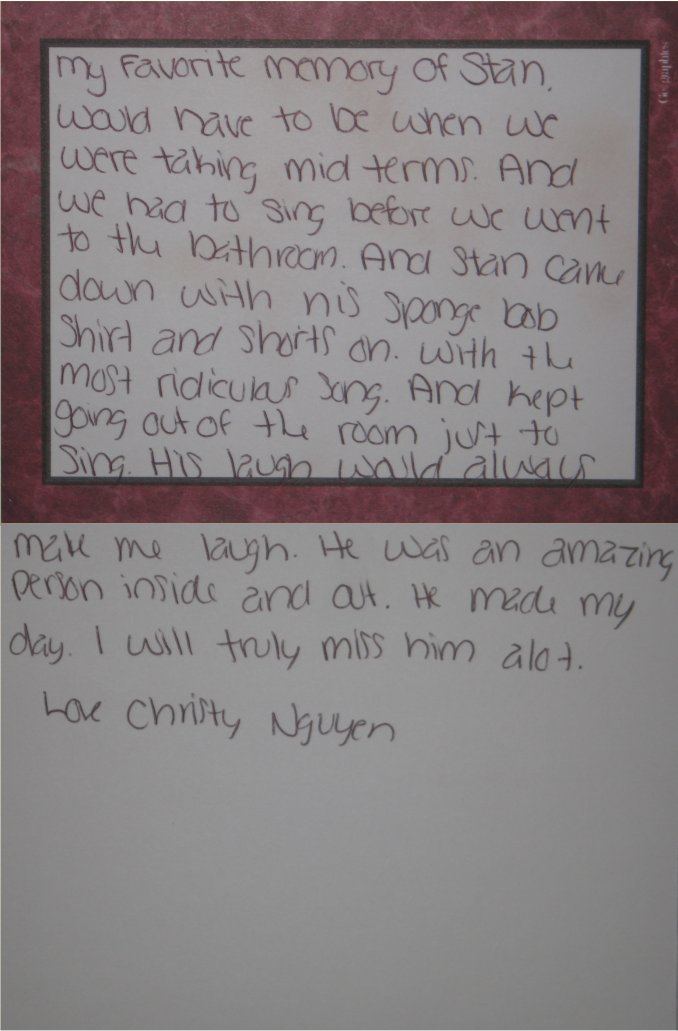 My Favorite memory of Stan,
would have to be when we
were taking mid terms. And
we had to sing before we went
to the bathroom. And Stan came
down with his sponge bob
Shirt and shorts on. with the
most ridicular song. And kept
going out of the room just to
Sing. His laugh would always
make me laugh. He was an amazing
person inside and out. He made my
day. I will truly miss him alot.
Love Christy Nguyen
Geographics